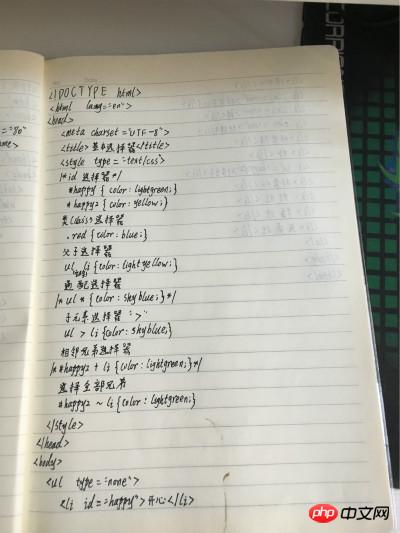 <!DOCTYPE html>
<html lang="en">
<head>
<meta charset="UTF-8">
<title>基本选择器</title>
<style type="text/css">
/*id 选择器*/
#happy { color: lightgreen;}
#happy2 {color: yellow;}
类(class)选择器
.red {color: blue;}
父子选择器
ul li {color: lightyellow;}
通配选择器
/* ul * {color: skyblue;} */
子元素选择器 ">"
ul > li {color: skyblue;}
相邻兄弟选择器
/* #happy2 + li {color: lightgreen;} */
选择全部兄弟
#happy2 ~ li {color: lightgreen;}
</style>
</head>
<body>
<ul type="none">
<li id="happy">开心</li>
="80
ame>
php 中文网